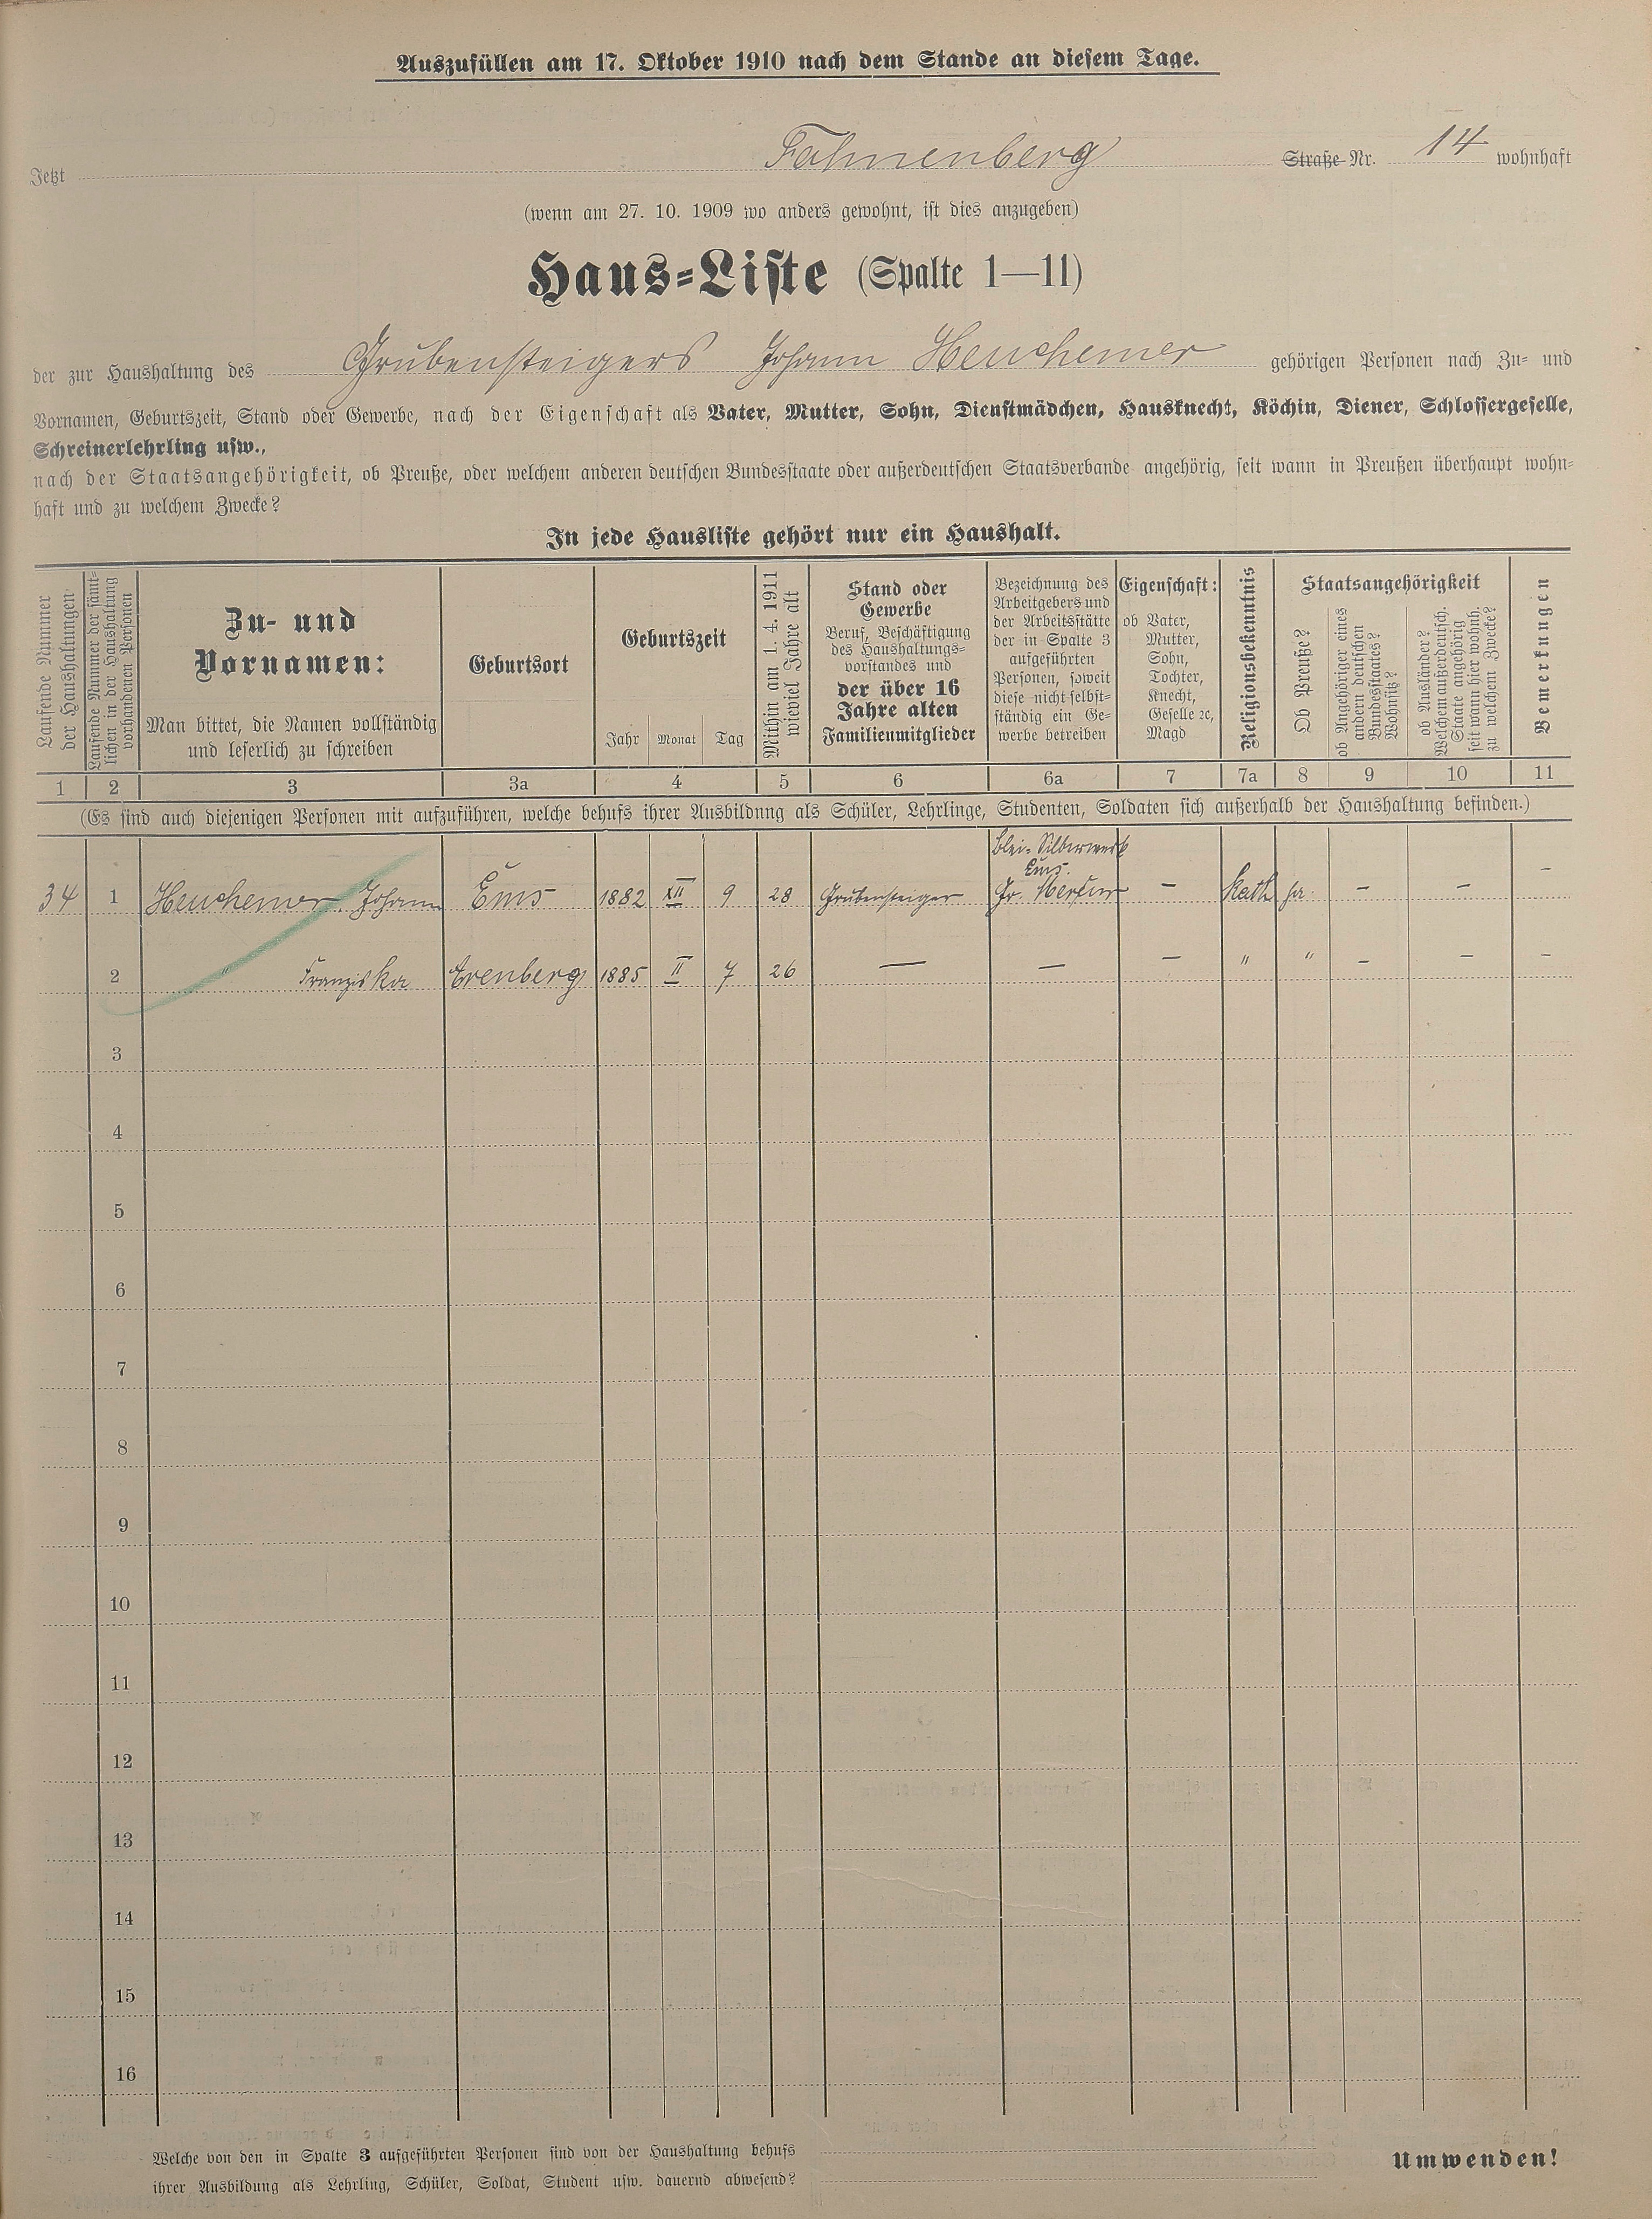 Auszufüllen am 17. Oktober 1910 nach dem Stande an diesem Tage.
Jetzt Fahnenberg Straße Nr. 14 wohnhaft
(wenn am 27. 10. 1909 wo anders gewohnt, ist dies anzugeben)
Haus-Liste (Spalte 1—11)
der zur Haushaltung des Grubensteigers Johann Heuchemer gehörigen Personen nach Zu- und
Vornamen, Geburtszeit, Stand oder Gewerbe, nach der Eigenschaft als Vater, Mutter, Sohn, Dienstmädchen, Hausknecht, Köchin, Diener, Schlossergeselle,
Schreinerlehrling usw.,
nach der Staatsangehörigkeit, ob Preuße, oder welchem anderen deutschen Bundesstaate oder außerdeutschen Staatsverbande angehörig, seit wann in Preußen überhaupt wohn-
haft und zu welchem Zwecke?
In jede Hausliste gehört nur ein Haushalt.
Laufende Nummer
der Haushaltungen
Laufende Nummer der sämt-
lichen in der Haushaltung
vorhandenen Personen
Zu- und
Vornamen:
Man bittet, die Namen vollständig
und leserlich zu schreiben
Geburtsort
Geburtszeit
Jahr Monat Tag
Mithin am 1. 4. 1911
wieviel Jahre alt
Stand oder
Gewerbe
Beruf, Beschäftigung
des Haushaltungs-
vorstandes und
der über 16
Jahre alten
Familienmitglieder
Bezeichnung des
Arbeitgebers und
der Arbeitsstätte
der in Spalte 3
aufgeführten
Personen, soweit
diese nicht selbst-
ständig ein Ge-
werbe betreiben
Eigenschaft:
ob Vater,
Mutter,
Sohn,
Tochter,
Knecht,
Geselle ꝛc,
Magd
Religionsbekenntnis
Staatsangehörigkeit
Ob Preuße?
ob Angehöriger eines
andern deutschen
Bundesstaates?
Wohnsitz?
ob Ausländer?
Welchem außerdeutsch.
Staate angehörig
seit wann hier wohnh.
zu welchem Zwecke?
Bemerkungen
1 2 3 3a 4 5 6 6a 7 7a 8 9 10 11
(Es sind auch diejenigen Personen mit aufzuführen, welche behufs ihrer Ausbildung als Schüler, Lehrlinge, Studenten, Soldaten sich außerhalb der Haushaltung befinden.)
Blei- Silberwerk
Ems.
34 1 Heuchemer Johann Ems 1882 XII 9 28 Grubensteiger Gr. — Kath. — — —
2 " Franziska Arenberg 1885 II 7 26 — — — " " — — —
3
4
5
6
7
8
9
10
11
12
13
14
15
16
Welche von den in Spalte 3 aufgeführten Personen sind von der Haushaltung behufs
ihrer Ausbildung als Lehrling, Schüler, Soldat, Student usw. dauernd abwesend?
Umwenden!